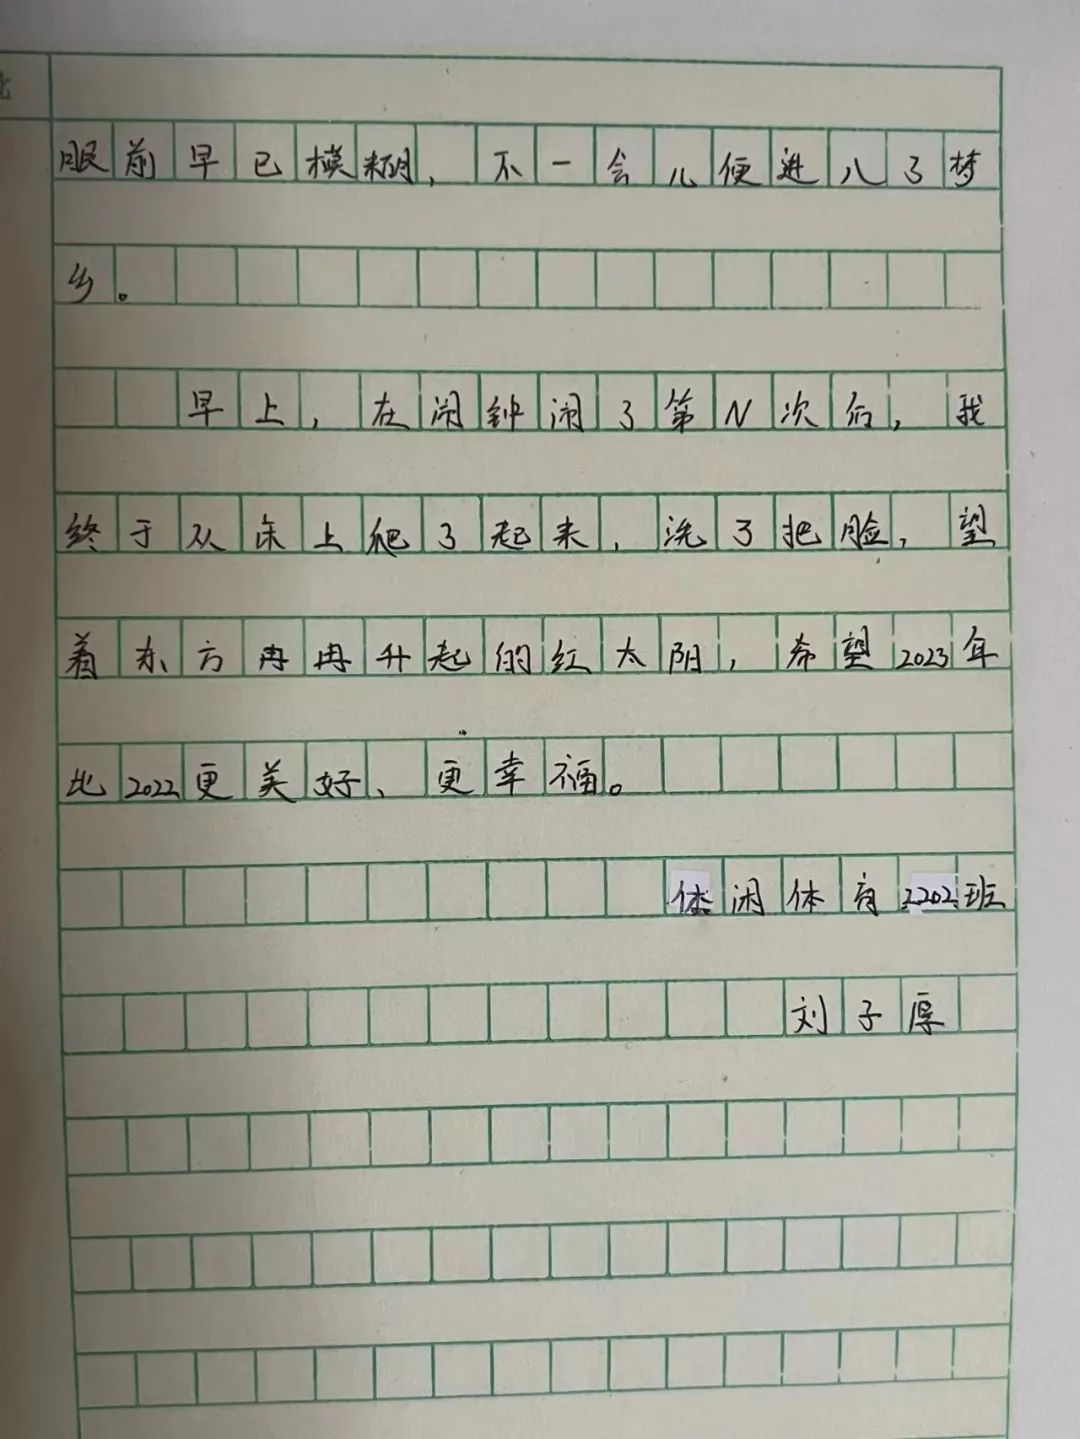 眼前早已模糊，不一会儿便进入了梦
乡。
早上，在闹钟闹了第N次后，我
终于从床上爬了起来，洗了把脸，望
着东方冉冉升起的红太阳，希望2023年
比2022更美好、更幸福。
休闲体育2202班
刘子厚